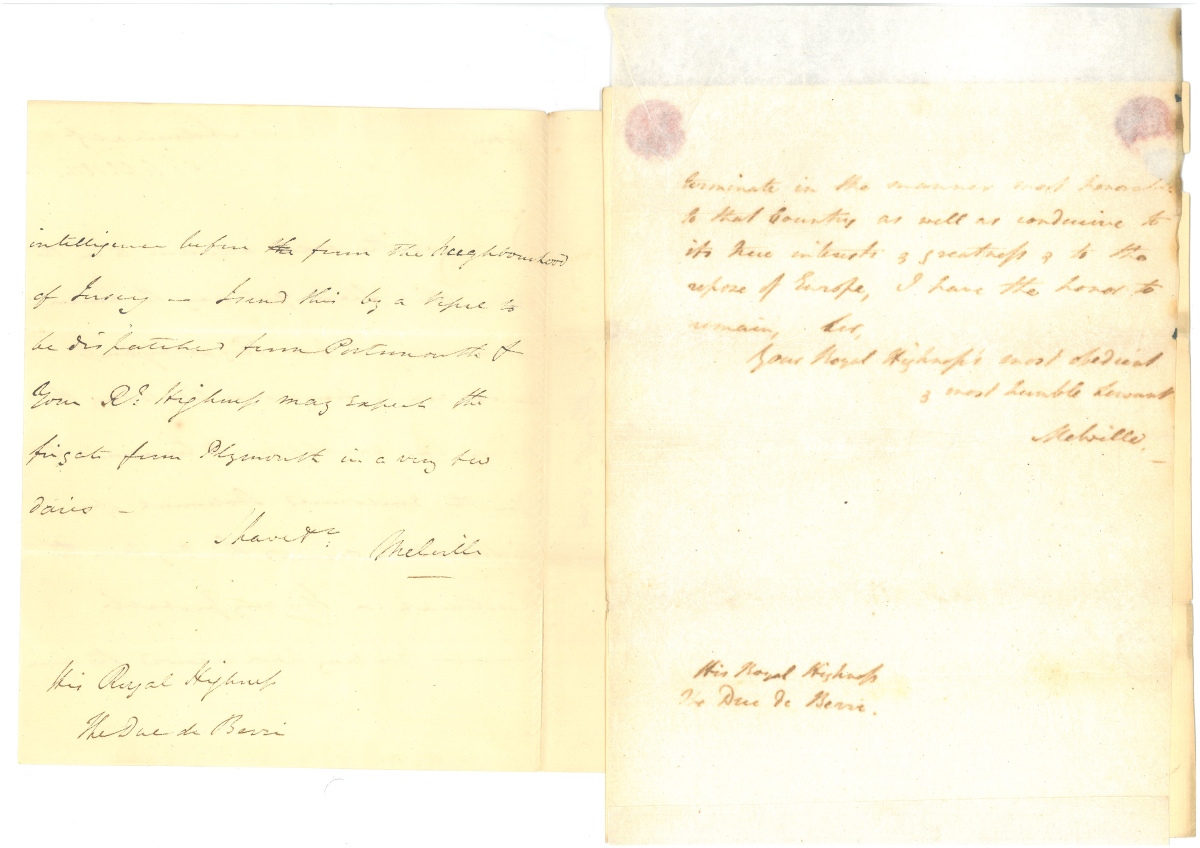 intelligence before the from the Neighbourhood
of Jersey – I send this by a Vessel to
be dispatched from Portsmouth &
Your Rl. Highness may expect the
frigate from Plymouth in a very few
daies –
I have &c.
Melville
His Royal Highness
The Duc de Berri
terminate in the manner most honorable
to that Country as well as conducive to
its true interests & greatness & to the
repose of Europe, I have the honor to
remain, Sir,
Your Royal Highness's most obedient
& most humble Servant
Melville.
His Royal Highness
The Duc de Berri.